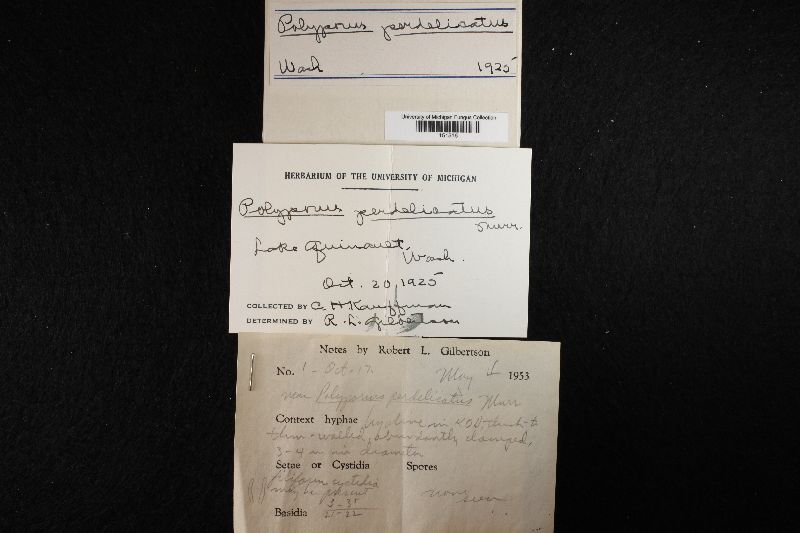 Polyporus perdelicatus
Wash 1925
University of Michigan Fungus Collection
HERBARIUM OF THE UNIVERSITY OF MICHIGAN
Polyporus perdelicatus
Murr.
Lake Quinault,
Wash.
Oct. 20, 1925
COLLECTED BY C. H. Kauffman
DETERMINED BY R. L. Gilbertson
Notes by Robert L. Gilbertson
No. 1-Oct-17 May 4 1953
near Polyporus perdelicatus Murr
Context hyphae hyaline in KOH, thick- to
thin-walled, abundantly clamped,
3-4 µ in diameter
Setae or Cystidia Spores
cystidia
may be present
none
seen
Basidia